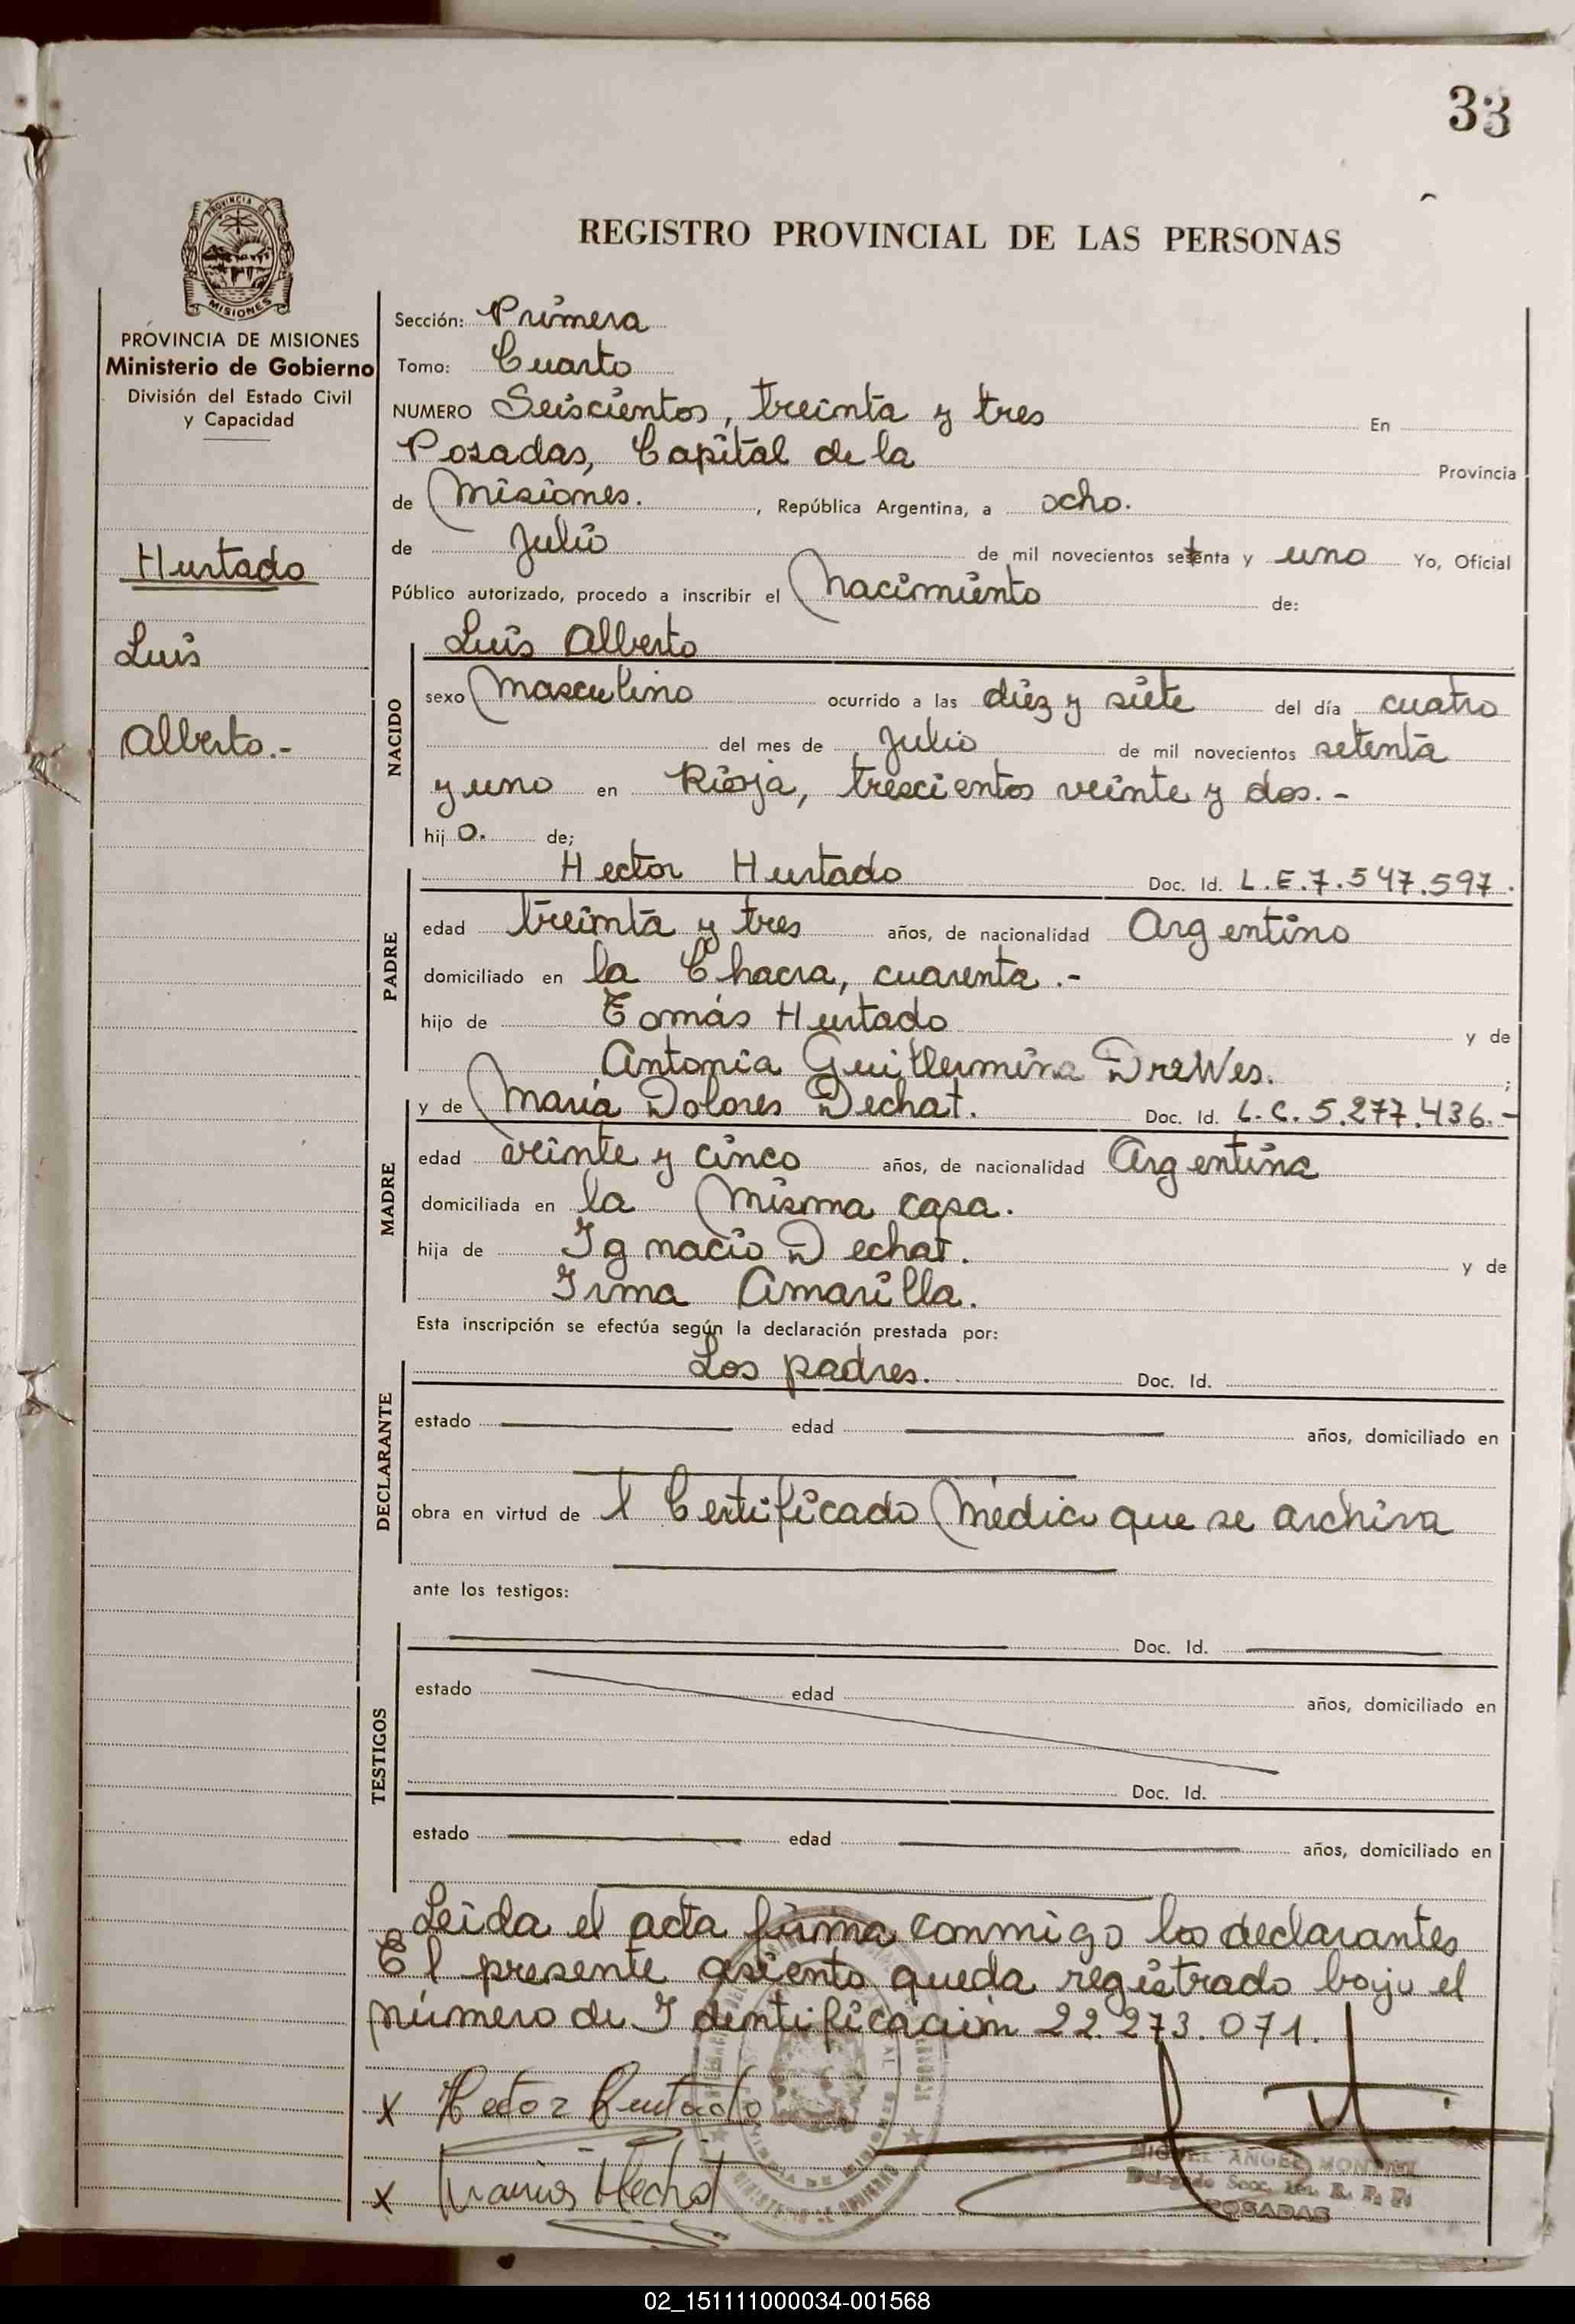 33
REGISTRO PROVINCIAL DE LAS PERSONAS
PROVINCIA DE
MISIONES
PROVINCIA DE MISIONES
Ministerio de Gobierno
División del Estado Civil
y Capacidad
Hurtado
Luis
Alberto.-
Sección: Primera
Tomo: Cuarto
NUMERO Seiscientos, treinta y tres En
Posadas, Capital de la Provincia
de Misiones. , República Argentina, a ocho.
de Julio de mil novecientos setenta y uno Yo, Oficial
Público autorizado, procedo a inscribir el Nacimiento de:
NACIDO
Luis Alberto
sexo Masculino ocurrido a las diez y siete del día cuatro
del mes de Julio de mil novecientos setenta
y uno en Rioja, trescientos veinte y dos.-
hijo. de;
PADRE
Hector Hurtado Doc. Id. L.E.7.547.597.
edad treinta y tres años, de nacionalidad Argentino
domiciliado en la Chacra, cuarenta.-
hijo de Tomás Hurtado y de
Antonia Guillermina DreWes. ;
MADRE
y de María Dolores Dechat. Doc. Id. L.C.5.277.436.-
edad veinte y cinco años, de nacionalidad Argentina
domiciliada en la Misma casa.
hija de Ignacio Dechat. y de
Irma Amarilla.
Esta inscripción se efectúa según la declaración prestada por:
DECLARANTE
Los padres. Doc. Id.
estado edad años, domiciliado en
obra en virtud de 1 Certificado Médico que se archiva
ante los testigos:
TESTIGOS
Doc. Id.
estado edad años, domiciliado en
Doc. Id.
estado edad años, domiciliado en
Leida el acta firma conmigo los declarantes
El presente asiento queda registrado bajo el
número de Identificación 22.273.071.
x Hector Hurtado
x Dechat
MIGUEL ANGEL
Delegado Secc. 1ra. R. P. P.
POSADAS
02_151111000034-001568